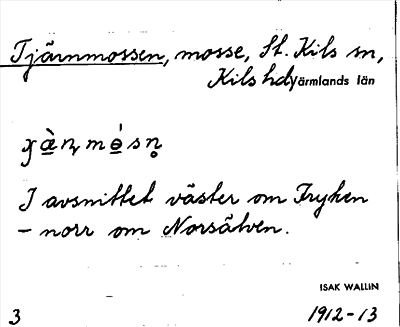 Tjärnmossen, mosse, St. Kils sn,
Kils hd Värmlands län
I avsnittet väster om Fryken
– norr om Norsälven.
ISAK WALLIN
3 1912-13